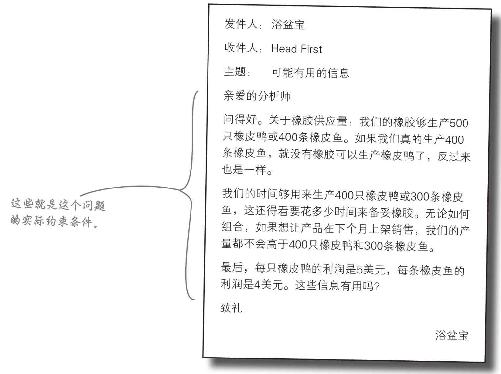 发件人：浴盆宝
收件人：Head First
主题： 可能有用的信息
亲爱的分析师
问得好。关于橡胶供应量：我们的橡胶够生产500
只橡皮鸭或400条橡皮鱼。如果我们真的生产400
条橡皮鱼，就没有橡胶可以生产橡皮鸭了，反过来
也是一样。
我们的时间够用来生产400只橡皮鸭或300条橡皮
鱼，这还得看要花多少时间来备妥橡胶。无论如何
组合，如果想让产品在下个月上架销售，我们的产
量都不会高于400只橡皮鸭和300条橡皮鱼。
最后，每只橡皮鸭的利润是5美元，每条橡皮鱼的
利润是4美元。这些信息有用吗？
致礼
浴盆宝
这些就是这个问题
的实际约束条件。